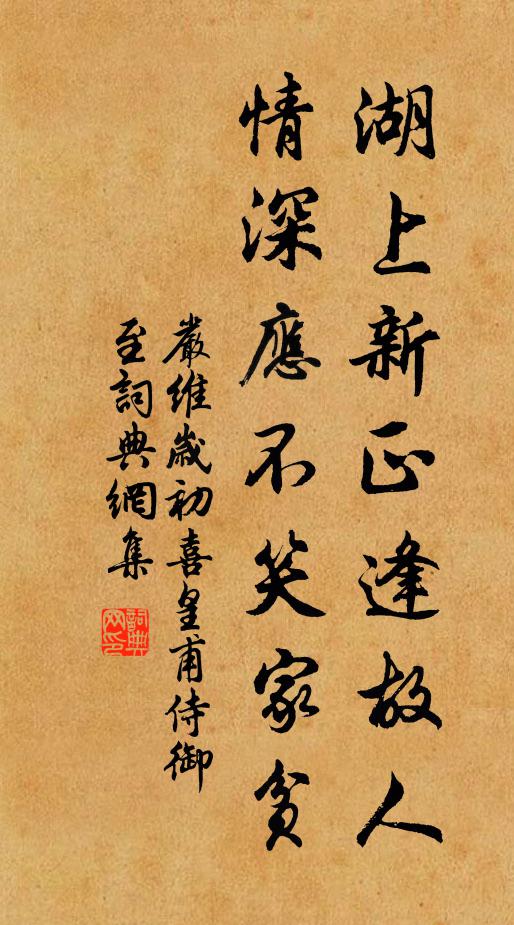 湖上新正逢故人
情深應不笑家貧
嚴維歲初喜皇甫侍御
至詞典網集
詞典
网印